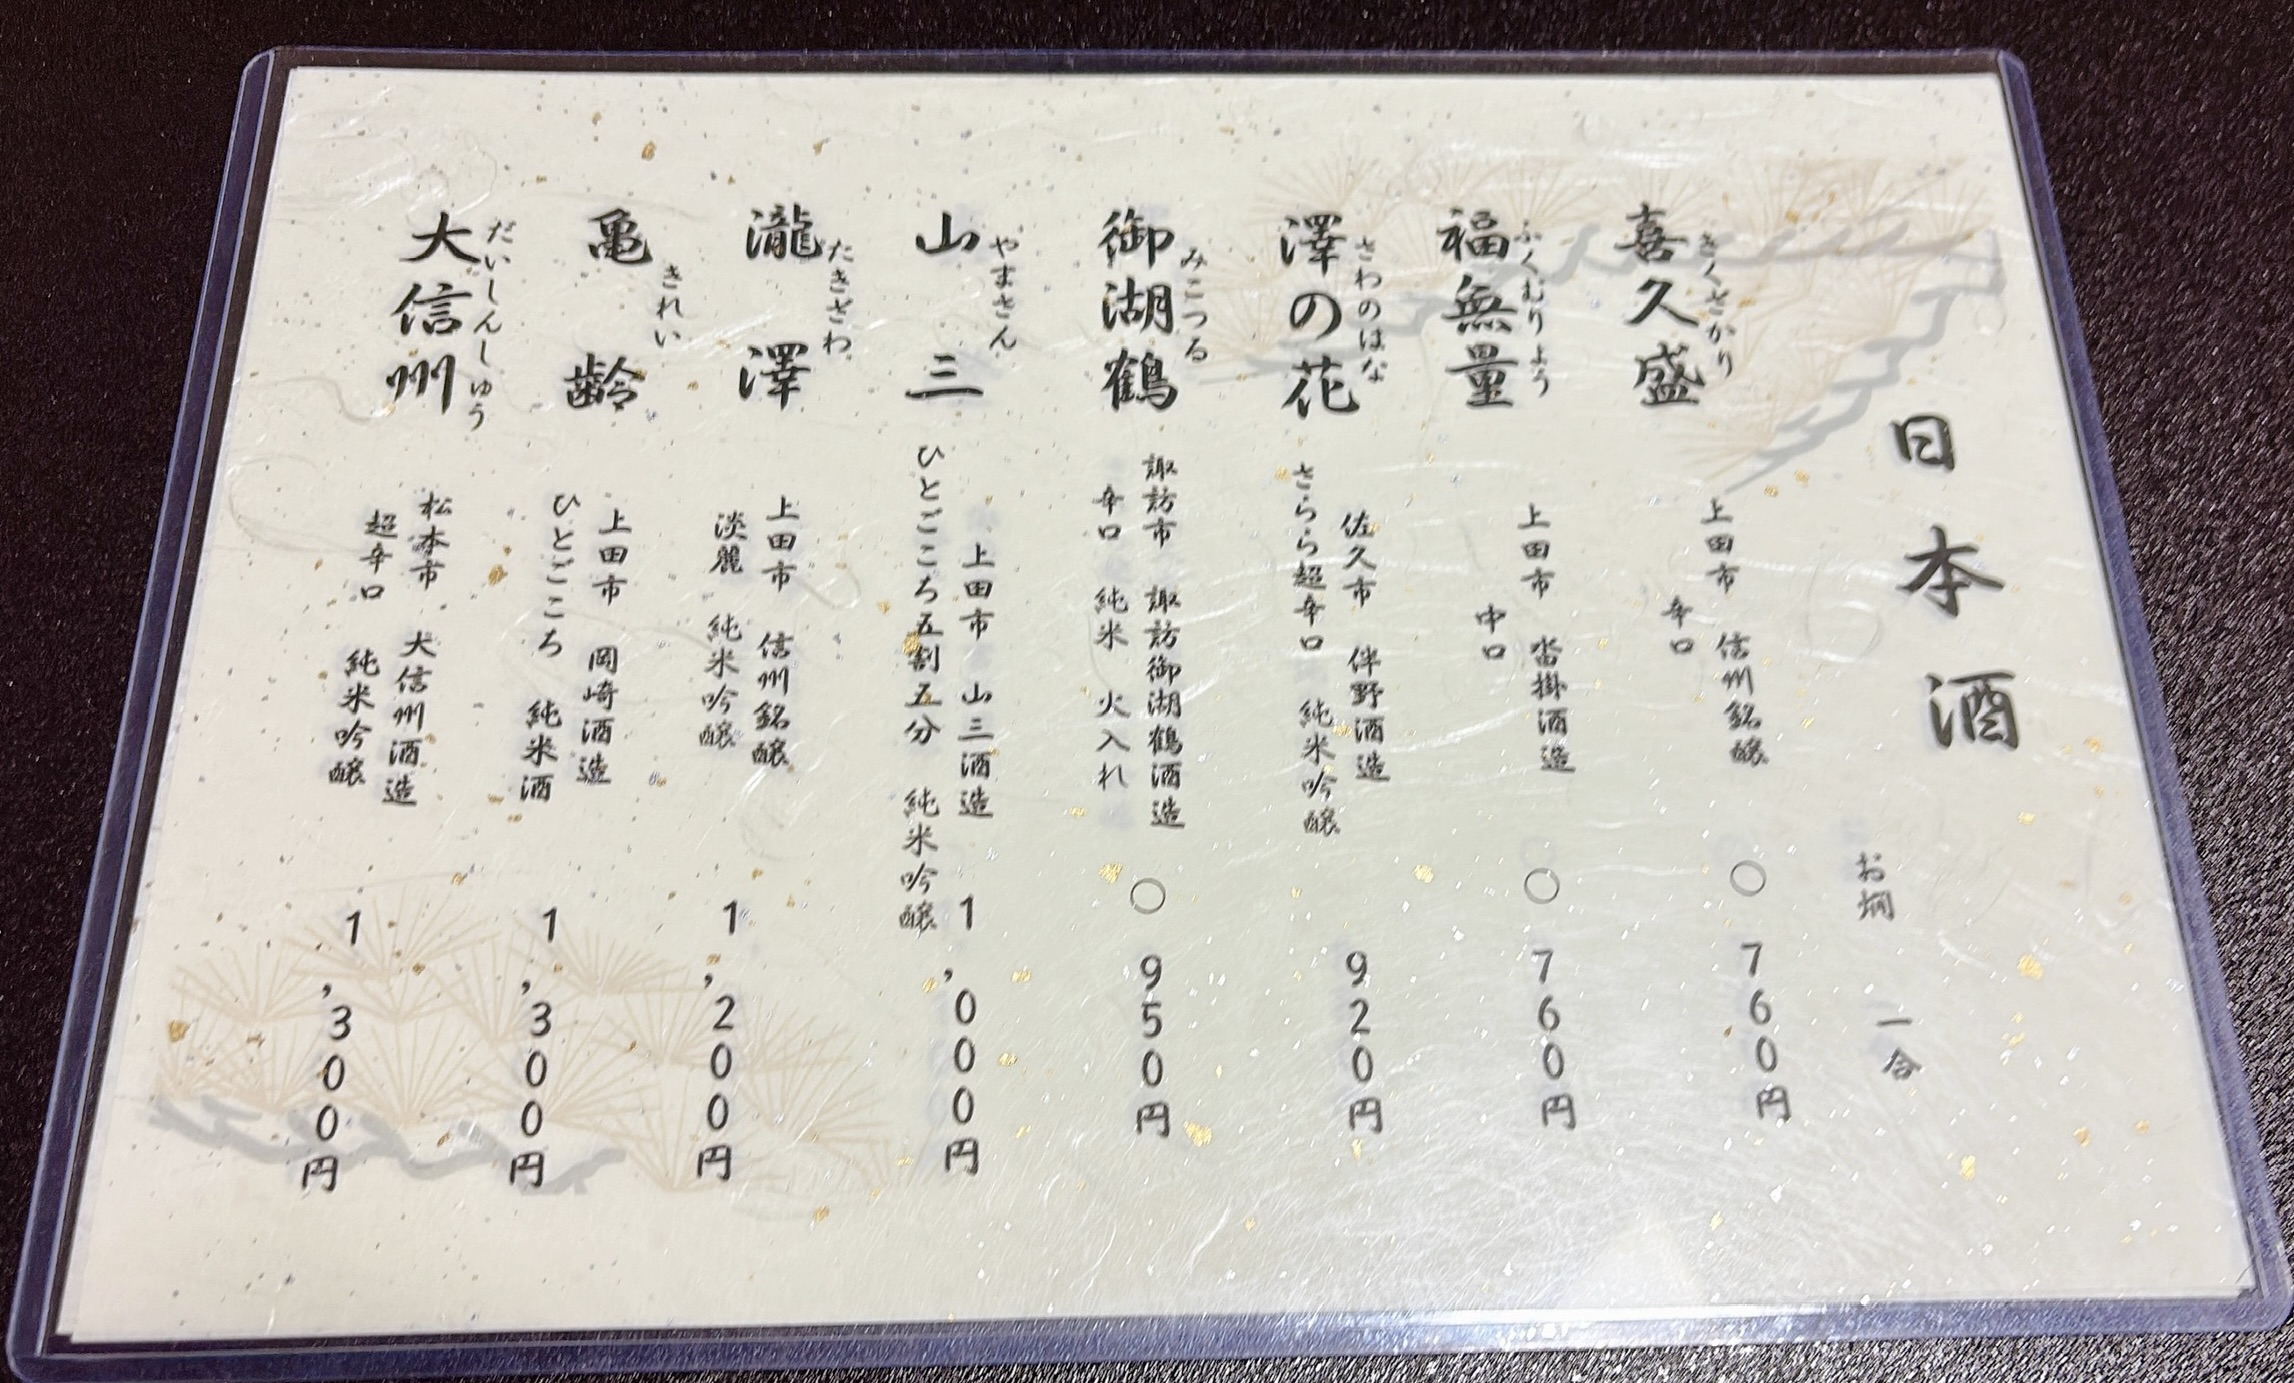 日本酒
お燗 一合
きくさかり
喜久盛
上田市 信州銘醸
辛口
○ 760円
ふくむりょう
福無量
上田市 沓掛酒造
中口
○ 760円
さわのはな
澤の花
佐久市 伴野酒造
さらら超辛口 純米吟醸
920円
みこつる
御湖鶴
諏訪市 諏訪御湖鶴酒造
辛口 純米 火入れ
○ 950円
やまさん
山三
上田市 山三酒造
ひとごころ五割五分 純米吟醸
1,000円
たきざわ
瀧澤
上田市 信州銘醸
淡麗 純米吟醸
1,200円
きれい
亀齢
上田市 岡崎酒造
ひとごころ 純米酒
1,300円
だいしんしゅう
大信州
松本市 大信州酒造
超辛口 純米吟醸
1,300円